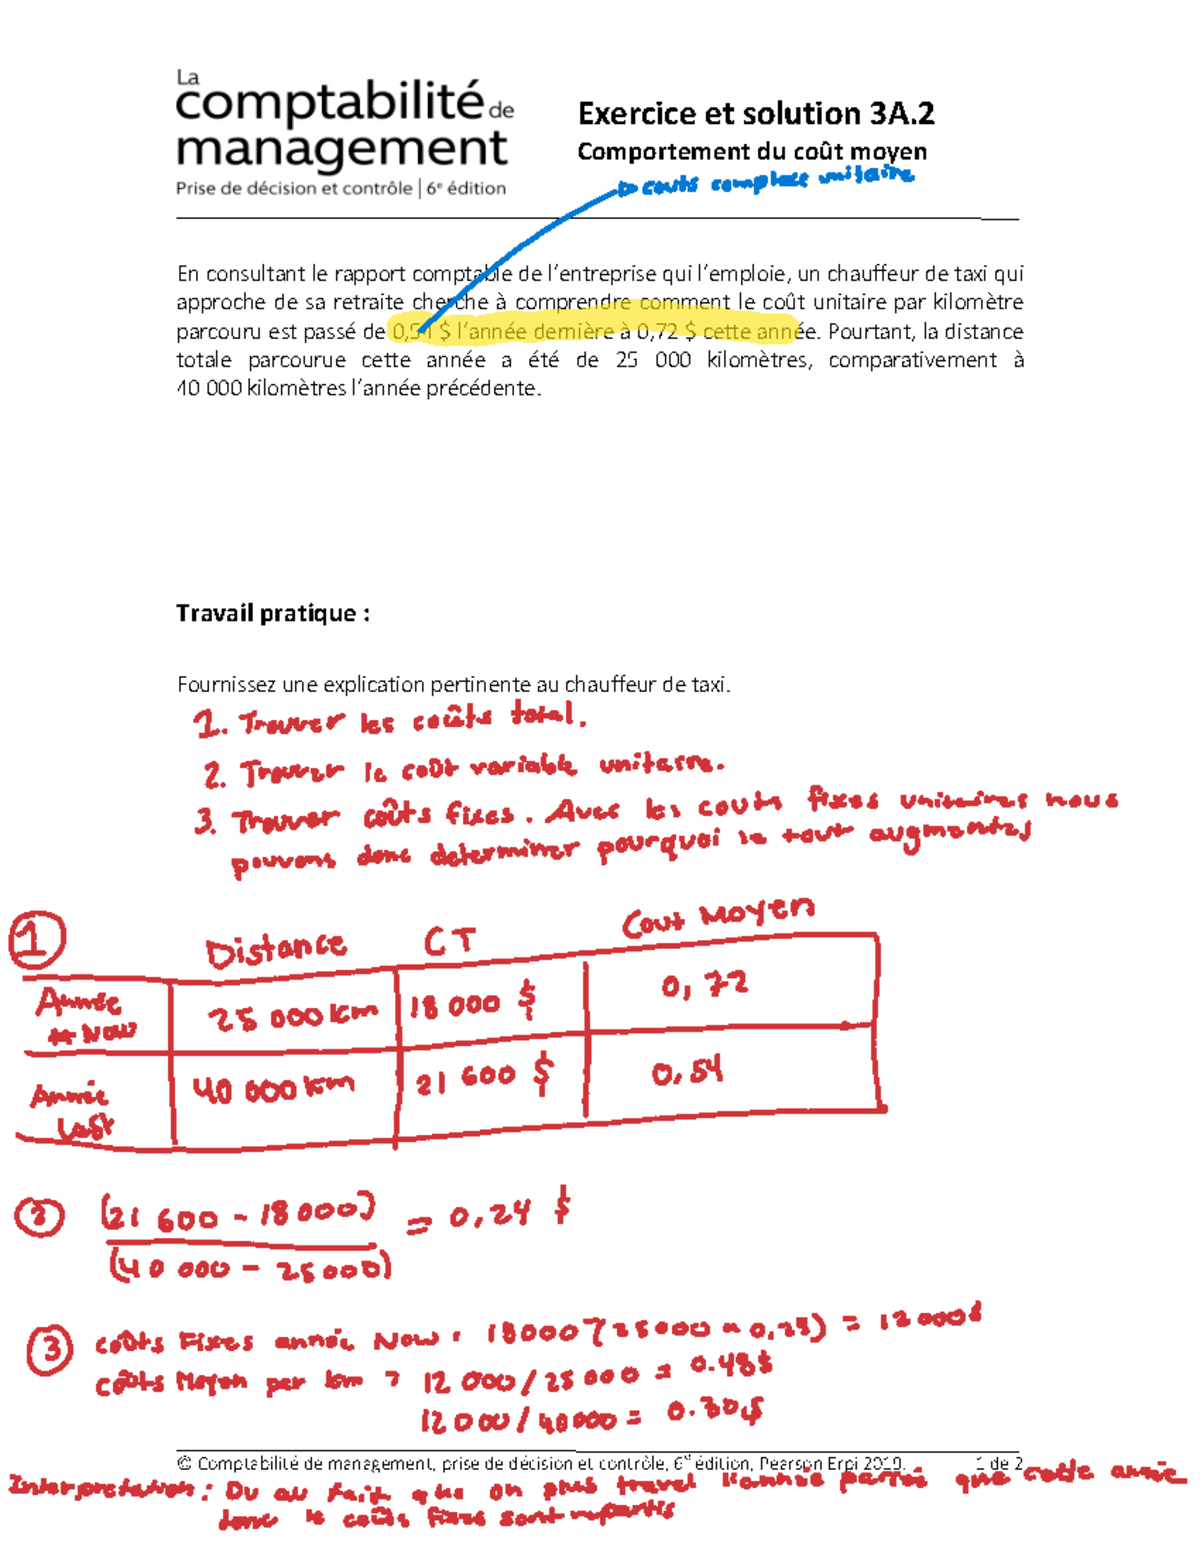 La
comptabilité de
management
Prise de décision et contrôle | 6e édition
Exercice et solution 3A.2
Comportement du coût moyen
couts complete unitaire
En consultant le rapport comptable de l'entreprise qui l'emploie, un chauffeur de taxi qui
approche de sa retraite cherche à comprendre comment le coût unitaire par kilomètre
parcouru est passé de 0,54 $ l'année dernière à 0,72 $ cette année. Pourtant, la distance
totale parcourue cette année a été de 25 000 kilomètres, comparativement à
40 000 kilomètres l'année précédente.
Travail pratique :
Fournissez une explication pertinente au chauffeur de taxi.
1. Trouver les coûts total.
2. Trouver le coût variable unitaire.
3. Trouver coûts fixes. Avec les couts fixes unitaires nous
pouvons donc determiner pourquoi le tout augmentes
1 Distance CT Cout Moyen
Année Now 25 000 km 18 000 $ 0,72
Année Last 40 000 km 21 600 $ 0,54
2 (21 600 - 18 000) = 0,24 $
(40 000 - 25 000)
3 coûts Fixes année Now : 18000 (25000 0,23) = 12 000$
coûts Moyen per km 12 000 / 25 000 = 0.48$
12 000 / 40000 = 0.30$
© Comptabilité de management, prise de décision et contrôle, 6e édition, Pearson Erpi 2019. 1 de 2
Interpretation : Du au fait que on plus travel l'année passé que cette année
donc le coûts fixes sont repartis